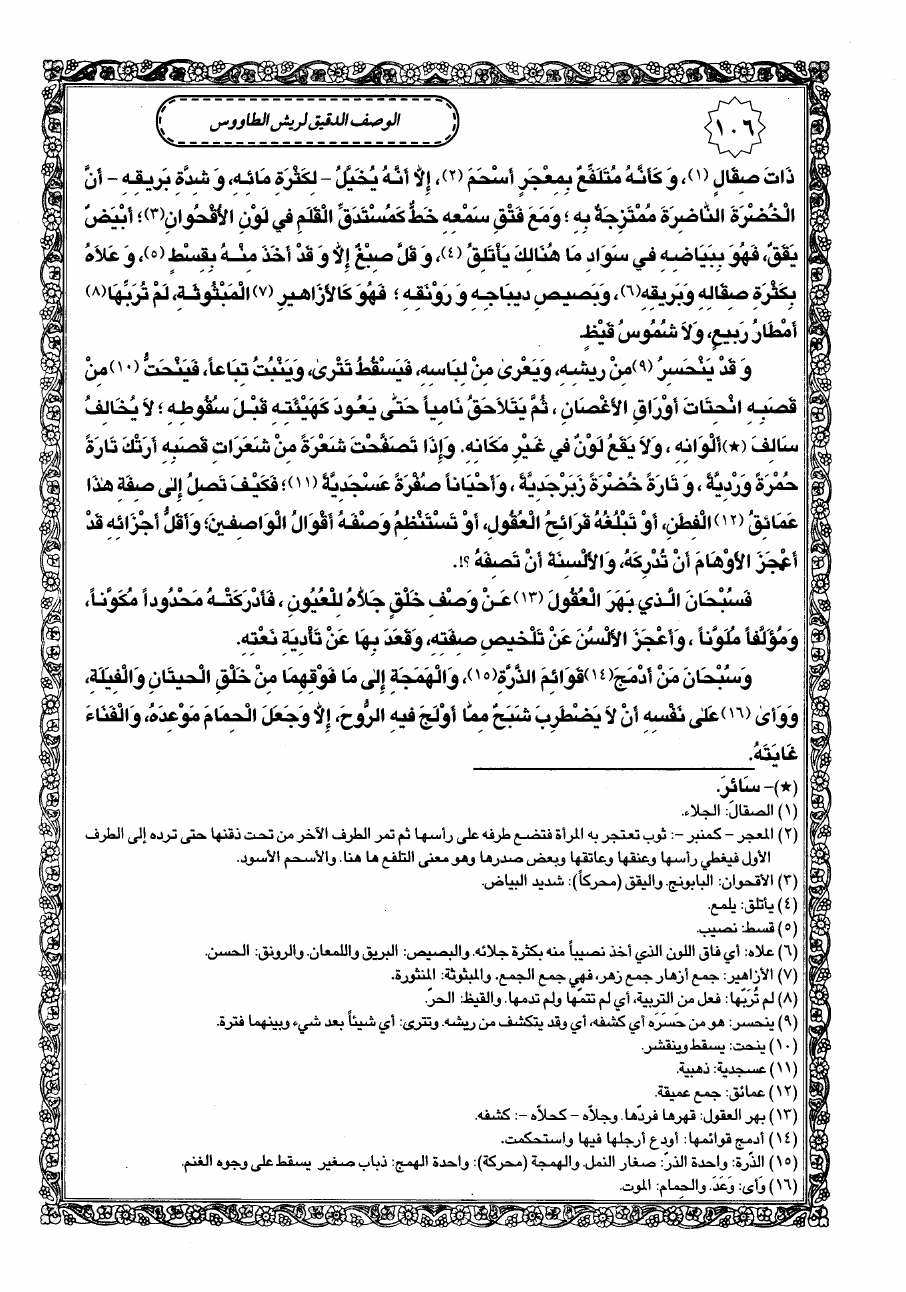 ١٠٦
الوصف الدقيق لريش الطاووس
ذَاتَ صِقَالٍ (١)، وَ كَأَنَّهُ مُتَلَفِّعٌ بِمِعْجَرٍ أَسْحَمَ (٢)، إِلاَّ أَنَّهُ يُخَيَّلُ - لِكَثْرَةِ مَائِهِ، وَ شِدَّةِ بَرِيقِهِ - أَنَّ
الْخُضْرَةَ النَّاضِرَةَ مُمْتَزِجَةٌ بِهِ ؛ وَمَعَ فَتْقِ سَمْعِهِ خَطٌّ كَمُسْتَدَقِّ الْقَلَمِ فِي لَوْنِ الأُقْحُوَانِ(٣)؛ أَبْيَضُ
يَقَقٌ، فَهُوَ بِبَيَاضِهِ فِي سَوَادِ مَا هُنَالِكَ يَأْتَلِقُ (٤)، وَ قَلَّ صِبْغٌ إِلاَّ وَ قَدْ أَخَذَ مِنْهُ بِقِسْطٍ (٥)، وَ عَلاَهُ
بِكَثْرَةِ صِقَالِهِ وَبَرِيقِهِ(٦)، وَبَصِيصِ دِيبَاجِهِ وَ رَوْنَقِهِ ؛ فَهُوَ كَالأَزَاهِيرِ (٧) الْمَبْثُوثَةِ، لَمْ تُرَبِّهَا (٨)
أَمْطَارُ رَبِيعٍ، وَلاَ شُمُوسُ قَيْظٍ.
وَ قَدْ يَنْحَسِرُ (٩)مِنْ رِيشِهِ، وَيَعْرَى مِنْ لِبَاسِهِ، فَيَسْقُطُ تَتْرَىٰ، وَيَنْبُتُ تِبَاعاً، فَيَنْحَتُّ (١٠)مِنْ
قَصَبِهِ انْحِتَاتَ أَوْرَاقِ الأَغْصَانِ ، ثُمَّ يَتَلاَحَقُ نَامِياً حَتَّى يَعُودَ كَهَيْئَتِهِ قَبْلَ سُقُوطِهِ ؛ لاَ يُخَالِفُ
سَالِفَ (★)أَلْوَانِهِ ، وَلاَ يَقَعُ لَوْنٌ فِي غَيْرِ مَكَانِهِ. وَإِذَا تَصَفَّحْتَ شَعْرَةً مِنْ شَعَرَاتِ قَصَبِهِ أَرَتْكَ تَارَةً
حُمْرَةً وَرْدِيَّةً ، وَ تَارَةً خُضْرَةً زَبَرْجَدِيَّةً ، وَأَحْيَاناً صُفْرَةً عَسْجَدِيَّةً (١١)؛ فَكَيْفَ تَصِلُ إِلى صِفَةِ هٰذَا
عَمَائِقُ (١٢) الْفِطَنِ، أَوْ تَبْلُغُهُ قَرَائِحُ الْعُقُولِ، أَوْ تَسْتَنْظِمُ وَصْفَهُ أَقْوَالُ الْوَاصِفِينَ؛ وَأَقَلُّ أَجْزَائِهِ قَدْ
أَعْجَزَ الأَوْهَامَ أَنْ تُدْرِكَهُ، وَالأَلْسِنَةَ أَنْ تَصِفَهُ ؟!.
فَسُبْحَانَ الَّذِي بَهَرَ الْعُقُولَ (١٣) عَنْ وَصْفِ خَلْقٍ جَلاَّهُ لِلْعُيُونِ ، فَأَدْرَكَتْهُ مَحْدُوداً مُكَوَّناً،
وَمُؤَلَّفاً مُلَوَّناً ، وَأَعْجَزَ الأَلْسُنَ عَنْ تَلْخِيصِ صِفَتِهِ، وَقَعَدَ بِهَا عَنْ تَأْدِيَةِ نَعْتِهِ.
وَسُبْحَانَ مَنْ أَدْمَجَ(١٤)قَوَائِمَ الذَّرَّةِ(١٥)، وَالْهَمَجَةِ إِلى مَا فَوْقَهِمَا مِنْ خَلْقِ الْحِيتَانِ وَالْفِيَلَةِ،
وَوَأَىٰ (١٦) عَلى نَفْسِهِ أَنْ لاَ يَضْطَرِبَ شَبَحٌ مِمَّا أَوْلَجَ فِيهِ الرُّوحَ، إِلاَّ وَجَعَلَ الْحِمَامَ مَوْعِدَهُ، وَالْفَنَاءَ
غَايَتَهُ.
(★)- سَائِرَ.
(١) الصقال: الجلاء.
(٢) المعجر - كمنبر -: ثوب تعتجر به المرأة فتضع طرفه على رأسها ثم تمر الطرف الآخر من تحت ذقنها حتى ترده إلى الطرف
الأول فيغطي رأسها وعنقها وعاتقها وبعض صدرها وهو معنى التلفع ها هنا. والأسحم الأسود.
(٣) الأقحوان: البابونج. واليقق (محركاً): شديد البياض.
(٤) يأتلق: يلمع.
(٥) قسط: نصيب.
(٦) علاه: أي فاق اللون الذي أخذ نصيباً منه بكثرة جلائه. والبصيص: البريق واللمعان. والرونق: الحسن.
(٧) الأزاهير: جمع أزهار جمع زهر، فهي جمع الجمع. والمبثوثة: المنثورة.
(٨) لم تُرَبّها: فعل من التربية، أي لم تتمّها ولم تدمها. والقيظ: الحرّ.
(٩) ينحسر: هو من حَسَرَه أي كشفه، أي وقد يتكشف من ريشه. وتترى: أي شيئاً بعد شيء وبينهما فترة.
(١٠) ينحت: يسقط وينقشر.
(١١) عسجدية: ذهبية.
(١٢) عمائق: جمع عميقة.
(١٣) بهر العقول: قهرها فردّها. وجلاّه - كحلاّه -: كشفه.
(١٤) أدمج قوائمها: أودع أرجلها فيها واستحكمت.
(١٥) الذّرة: واحدة الذرّ: صغار النمل. والهمجة (محركة): واحدة الهمج: ذباب صغير يسقط على وجوه الغنم.
(١٦) وَأى: وَعَدَ. والحِمام: الموت.